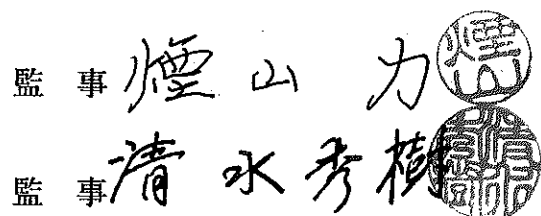 監事 煙山 力
監事 清水秀樹